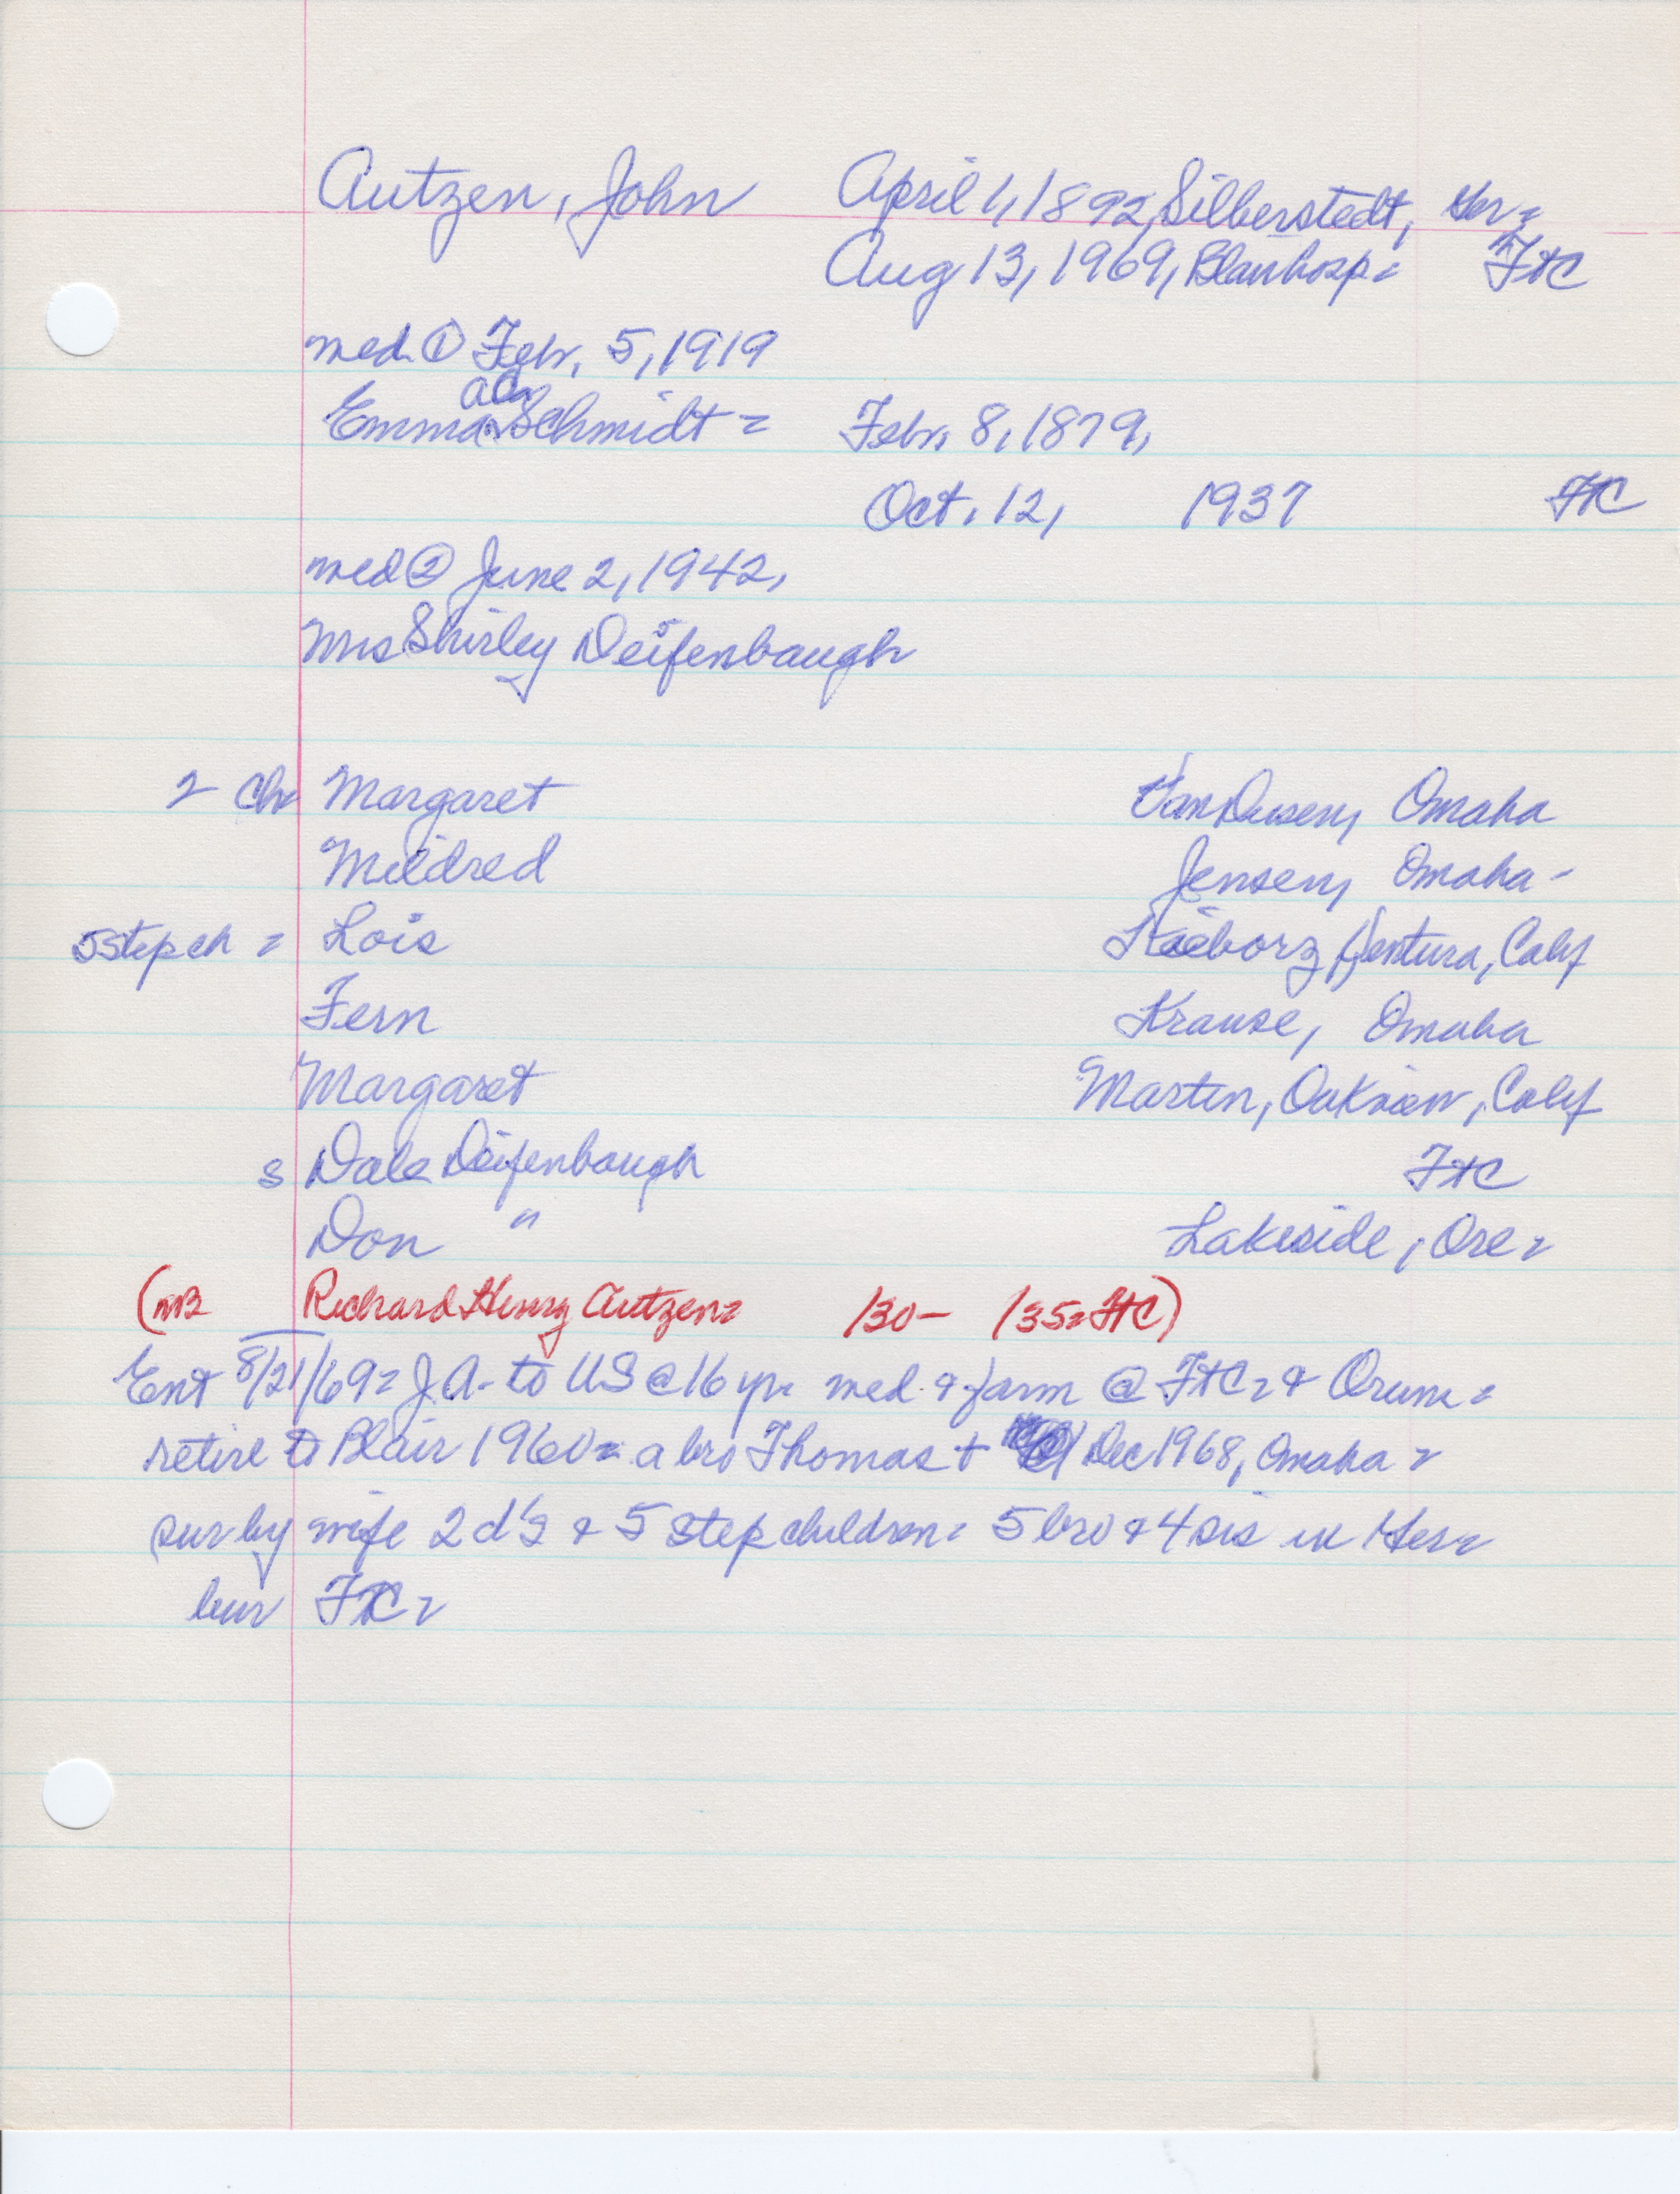 Autzen, John April 1, 1892, Silberstedt, Ger=
Aug 13, 1969, Blair hosp= FtC
med ① Febr. 5, 1919
Emma Schmidt = Febr. 8, 1879,
Oct. 12, 1937 FtC
med ② June 2, 1942,
Mrs Shirley Deifenbaugh
2 ch Margaret VanDusen, Omaha
Mildred Jensen, Omaha -
5 step ch = Lois Ventura, Calif
Fern Krause, Omaha
Margaret Martin, Oakview, Calif
s Dale Deifenbaugh FtC
Don " Lakeside, Ore=
(NB Richard Henry Autzen= /30- /35= FtC)
Ent 8/21/69= J.A. to US @ 16 yr= med. & farm @ FtC= & Orum=
retire to Blair 1960= a bro Thomas + Dec 1968, Omaha=
sur by wife 2 d's & 5 step children= 5 bro & 4 sis in Ger=
bur FtC=